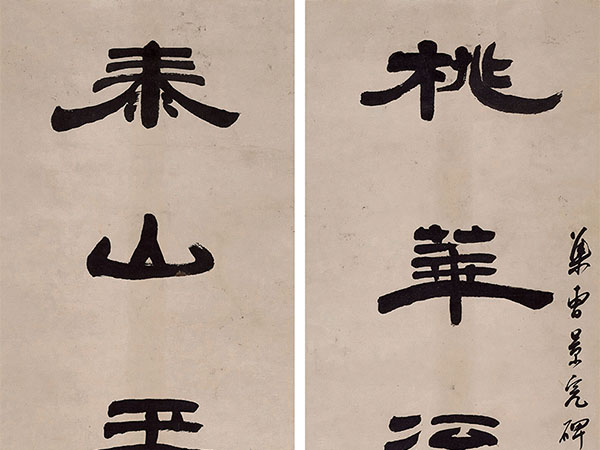 集曹景完碑
桃華
泰山